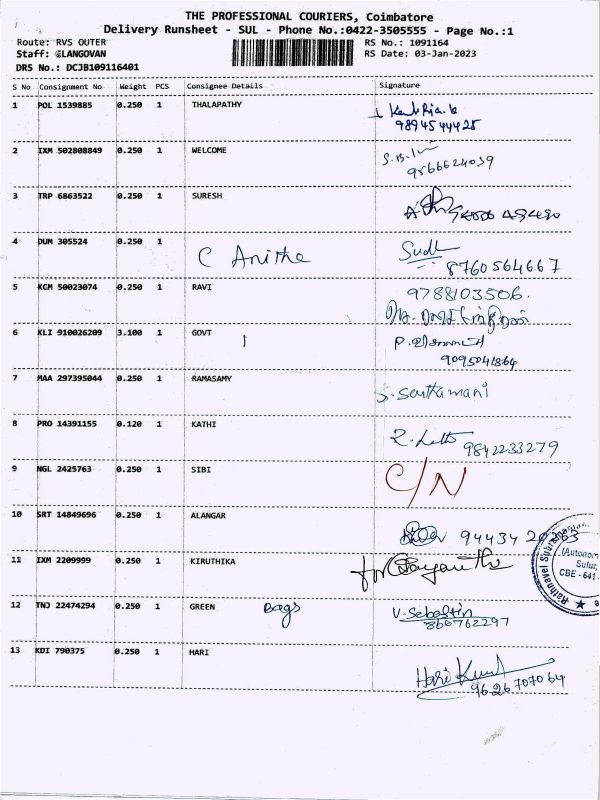 THE PROFESSIONAL COURIERS, Coimbatore
Delivery Runsheet - SUL - Phone No.:0422-3505555 - Page No.:1
Route: RVS OUTER RS No.: 1091164
Staff: ELANGOVAN RS Date: 03-Jan-2023
DRS No.: DCJB109116401
S No Consignment No Weight PCS Consignee Details Signature
1 POL 1539885 0.250 1 THALAPATHY
9894544425
2 IXM 502808849 0.250 1 WELCOME
9566624039
3 TRP 6863522 0.250 1 SURESH
4 DUM 305524 0.250 1
C Anitha Sudh
8760564667
5 KCM 50023074 0.250 1 RAVI 9788103506.
6 KLI 910026209 3.100 1 GOVT
9095041864
7 MAA 297395044 0.250 1 RAMASAMY
S. Senthamani
8 PRO 14391155 0.120 1 KATHI
9842233279
9 NGL 2425763 0.250 1 SIBI C/N
10 SRT 14849696 0.250 1 ALANGAR
94434
11 IXM 2209999 0.250 1 KIRUTHIKA for
12 TNJ 22474294 0.250 1 GREEN Bags V. Sebastin
866762297
13 KDI 790375 0.250 1 HARI
Hari Kumar
9626707064
Rathnavel Subramaniam
(Autonom
Sulur,
CBE - 641